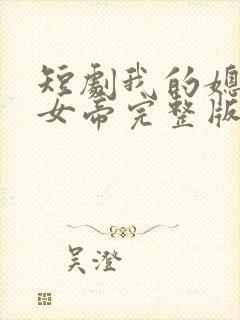 短劇我的媳
女帝完整版
吴澄